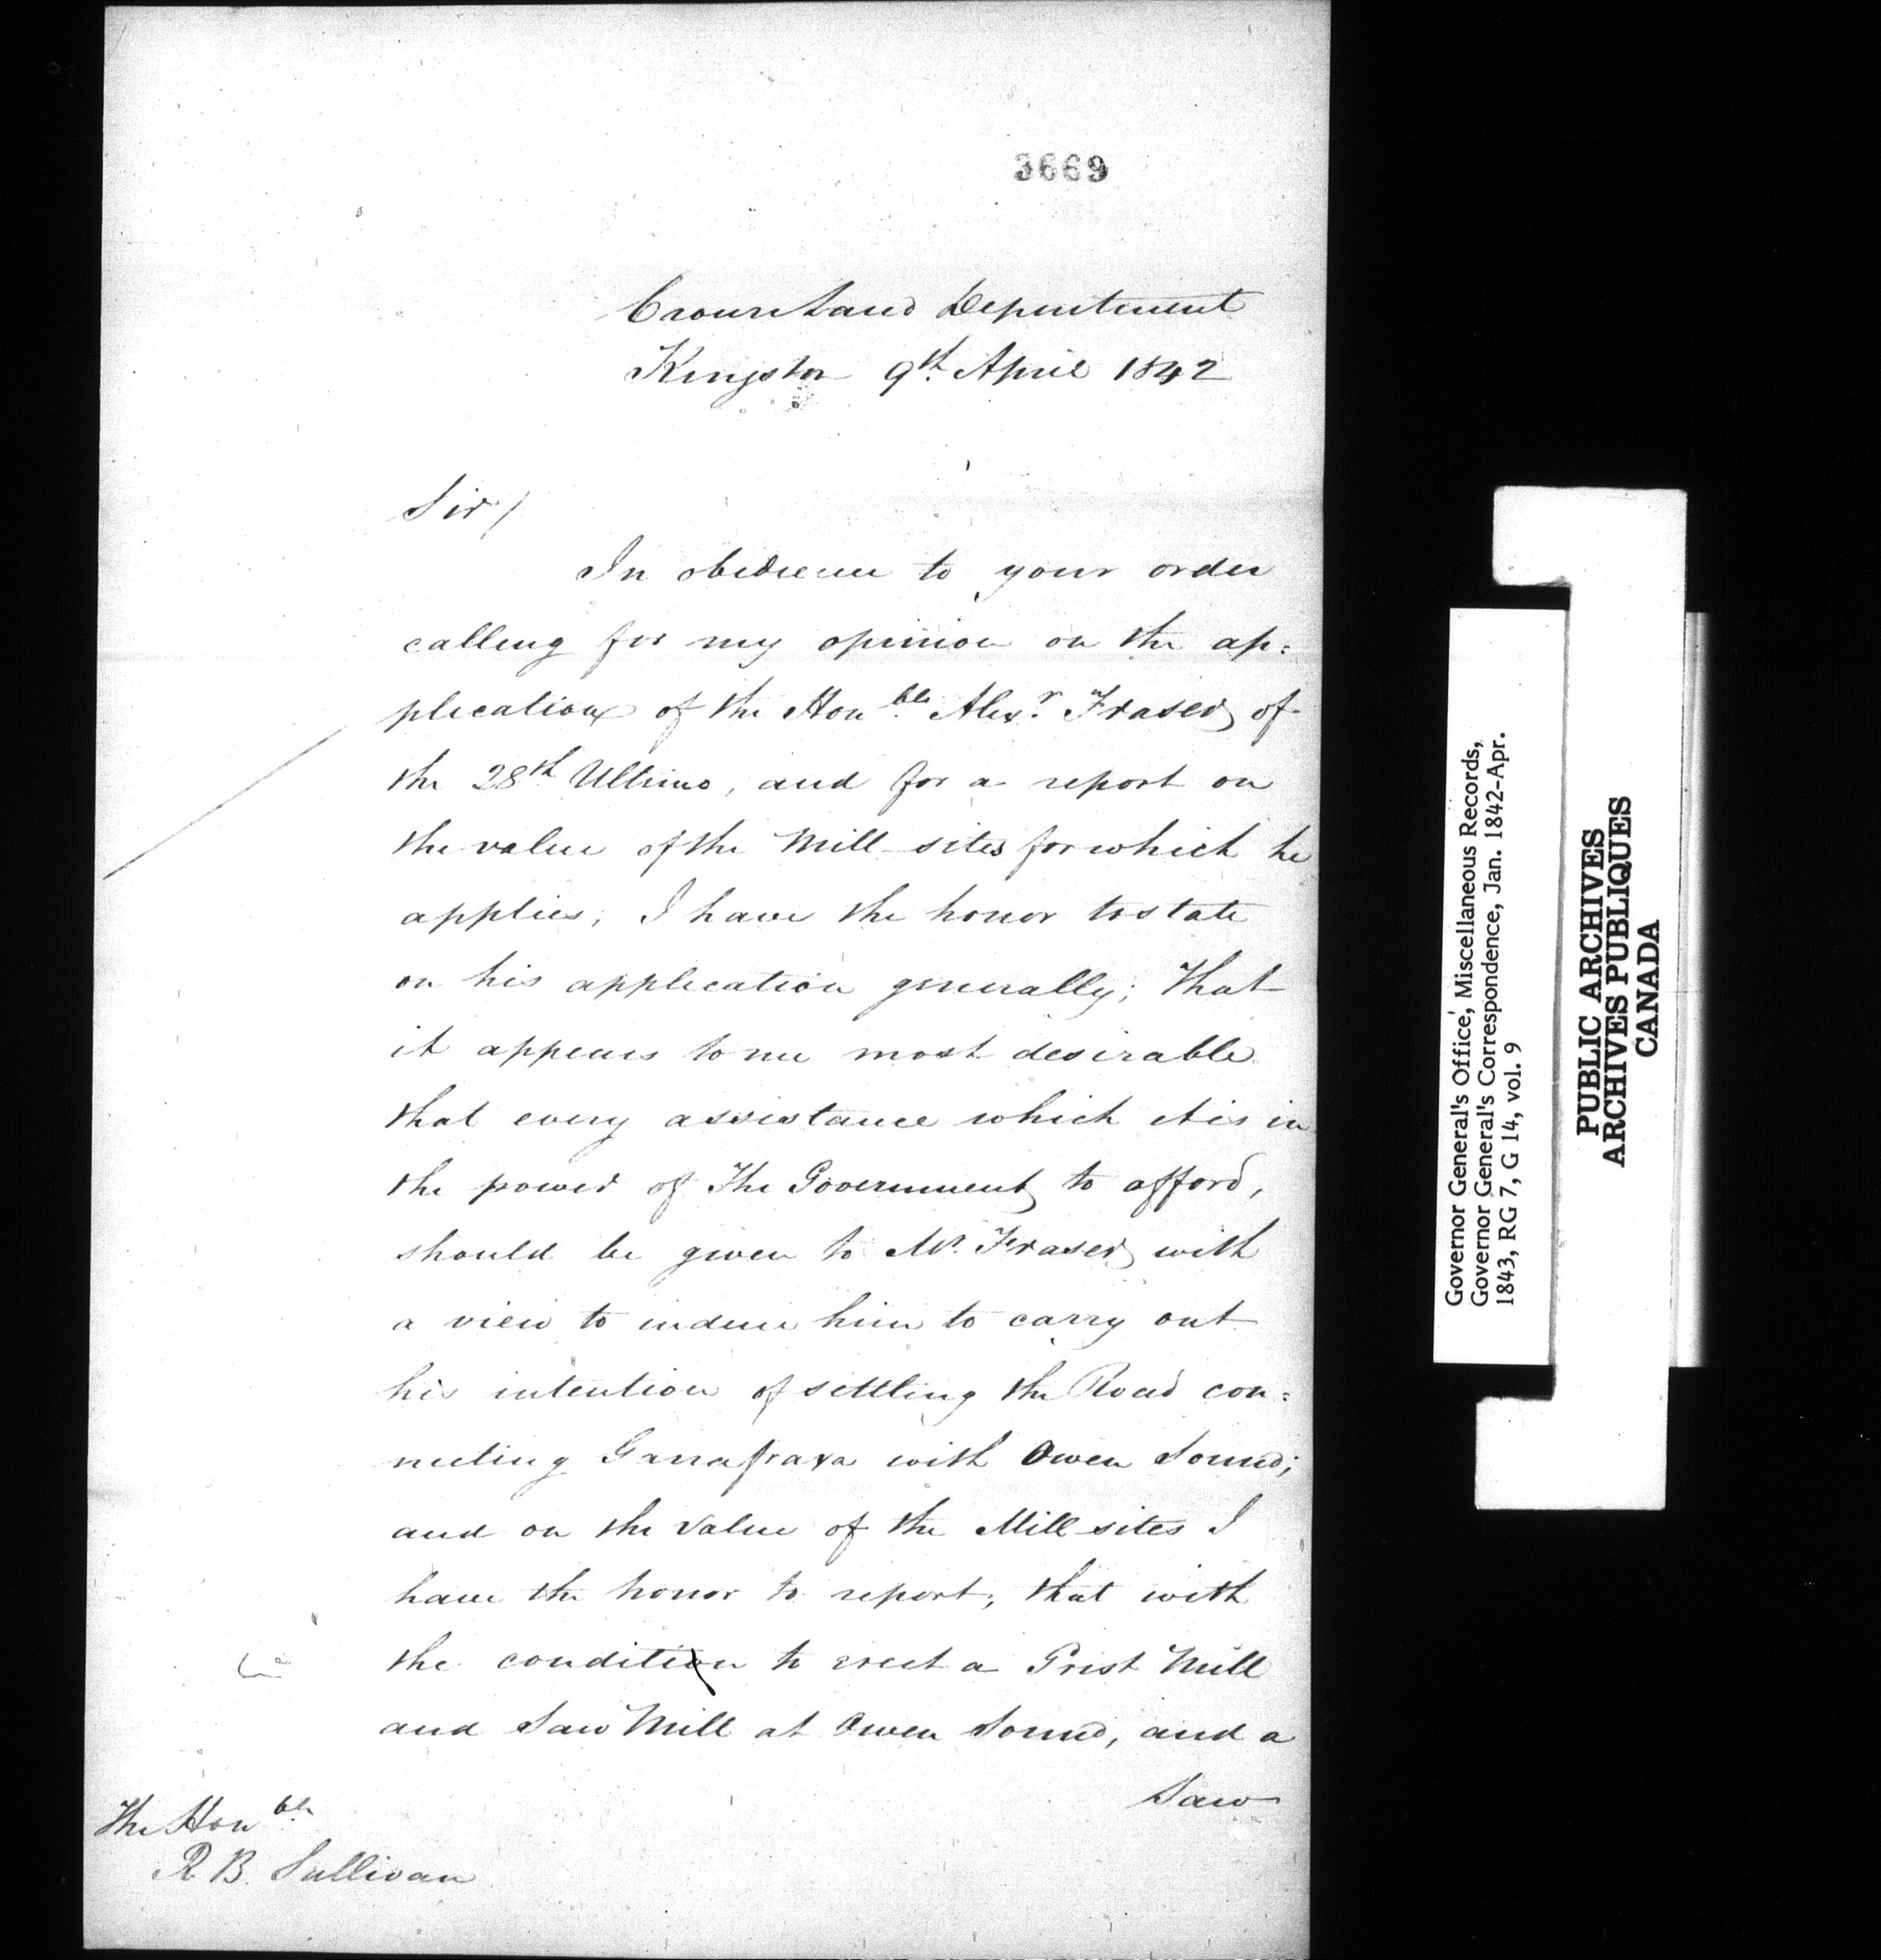 3669
Crown Land Department
Kingston 9th April 1842
Sir/
In obedience to your order
calling for my opinion on the ap=
plication of the Honble Alexr Fraser of
the 28th Ultimo, and for a report on
the value of the Mill sites for which he
applies; I have the honor to state
on his application generally; That
it appears to me most desirable
that every assistance which it is in
the power of The Government to afford,
should be given to Mr. Fraser with
a view to induce him to carry out
his intention of settling the Road con=
necting Garrafraxa with Owen Sound;
and on the value of the Mill sites I
have the honor to report, that with
the condition to erect a Grist Mill
and Saw Mill at Owen Sound, and a
Saw
The Honble
R B. Sullivan
Governor General's Office, Miscellaneous Records,
Governor General's Correspondence, Jan. 1842-Apr.
1843, RG 7, G 14, vol. 9
PUBLIC ARCHIVES
ARCHIVES PUBLIQUES
CANADA